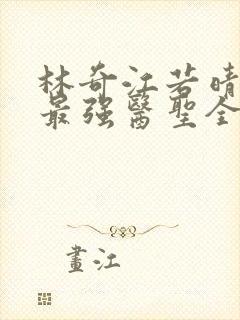 林奇江若晴
最强醫聖全
畫江